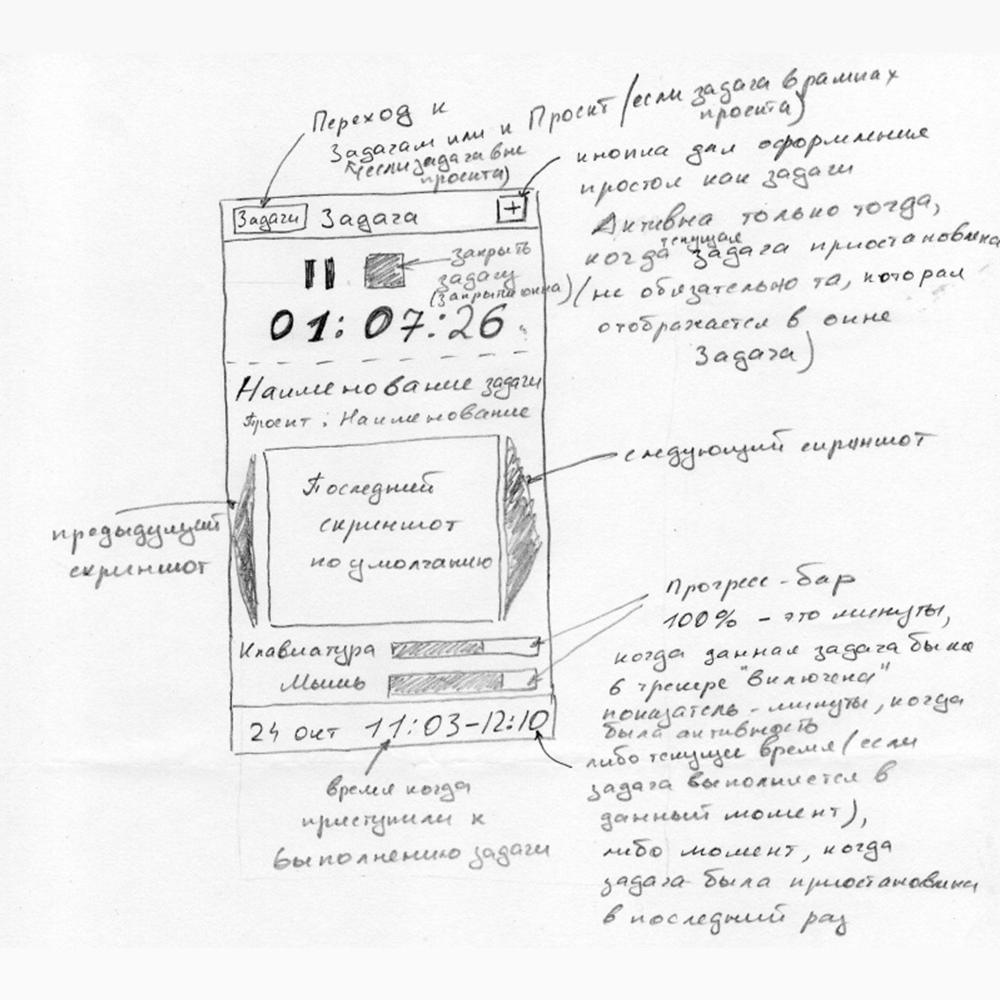 Переход к
Задачам или к Проект (если задача в рамках
проекта)
(если задача вне
проекта)
кнопка для оформления
простоя как задачи
Активна только тогда,
когда текущая задача приостановлена
(не обязательно та, которая
отображается в окне
Задача)
Задачи Задача +
закрыть
задачу
(закрытие окна)
01:07:26
Наименование задачи
Проект: Наименование
следующий скриншот
Последний
скриншот
по умолчанию
предыдущий
скриншот
Прогресс-бар
100% - это минуты,
когда данная задача была
в трекере "включена"
показатель - минуты, когда
была активность
Клавиатура
Мышь
24 окт 11:03-12:10
время когда
приступили к
выполнению задачи
либо текущее время (если
задача выполняется в
данный момент),
либо момент, когда
задача была приостановлена
в последний раз